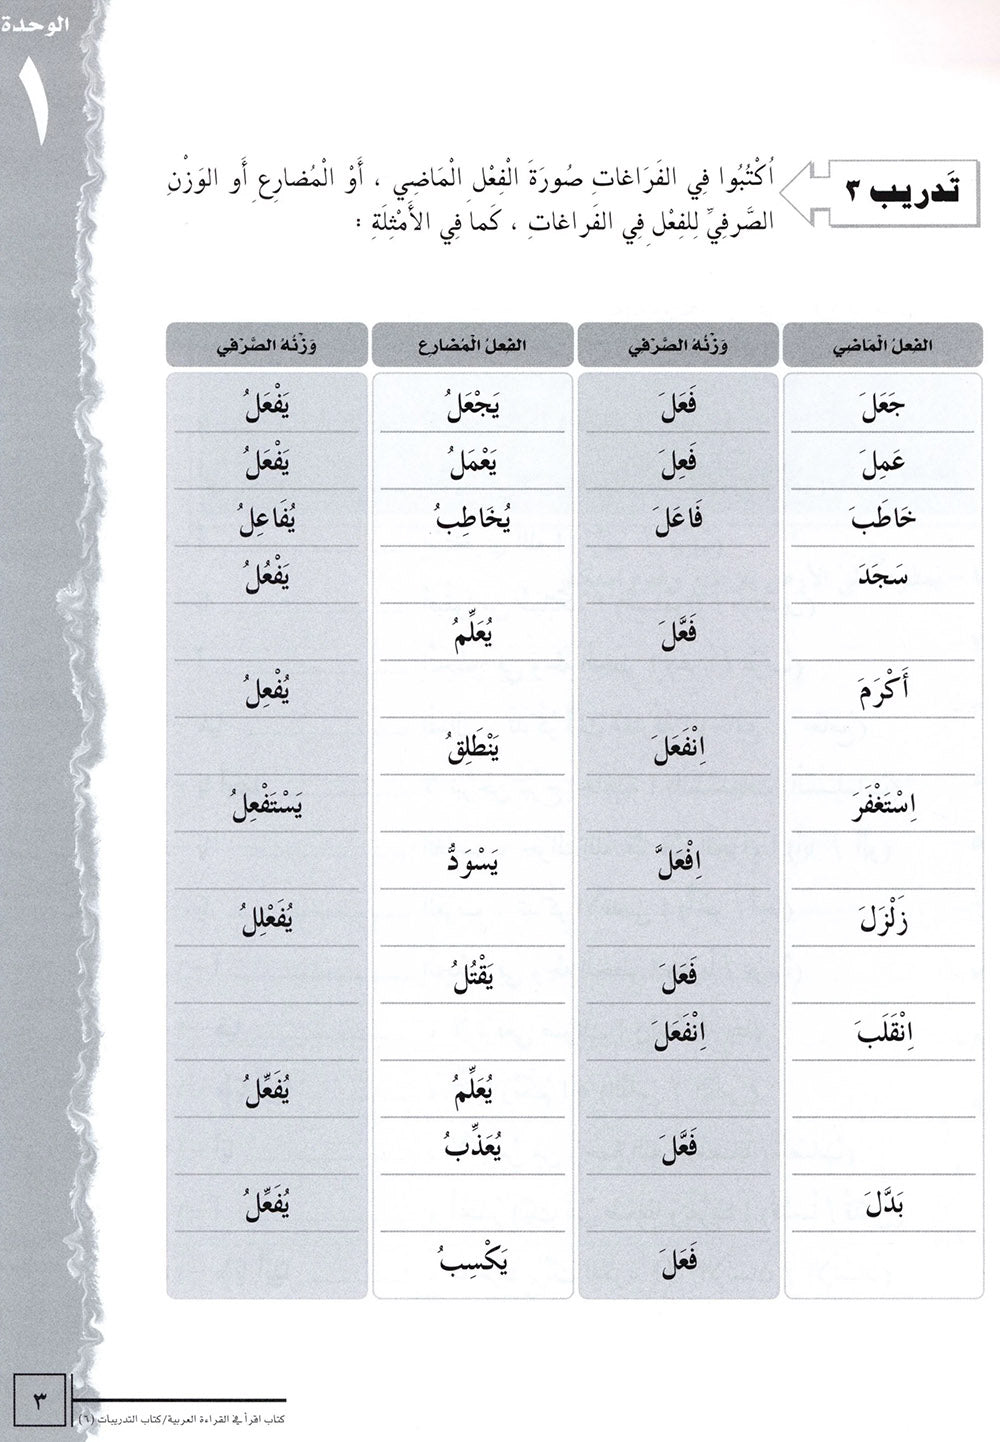 الوحدة
١
تَدريب ٣
اُكْتُبُوا فِي الفَرَاغاتِ صُورَةَ الْفِعْلِ الْمَاضِي ، أَوْ الْمُضارِعِ أَو الوَزْنِ
الصَّرفِيِّ لِلفِعْلِ فِي الفَراغاتِ ، كَما فِي الأَمْثِلَةِ :
الفعلُ الْمَاضِي وَزْنُهُ الصَّرْفِي الفعلُ الْمُضارع وَزْنُهُ الصَّرْفِي
جَعَلَ فَعَلَ يَجْعَلُ يَفْعَلُ
عَمِلَ فَعِلَ يَعْمَلُ يَفْعَلُ
خَاطَبَ فَاعَلَ يُخَاطِبُ يُفَاعِلُ
سَجَدَ يَفْعُلُ
فَعَّلَ يُعَلِّمُ
أَكْرَمَ يُفْعِلُ
اِنْفَعَلَ يَنْطَلِقُ
اِسْتَغْفَرَ يَسْتَفْعِلُ
اِفْعَلَّ يَسْوَدُّ
زَلْزَلَ يُفَعْلِلُ
فَعَلَ يَقْتُلُ
اِنْقَلَبَ اِنْفَعَلَ
يُعَلِّمُ يُفَعِّلُ
فَعَّلَ يُعَذِّبُ
بَدَّلَ يُفَعِّلُ
فَعَلَ يَكْسِبُ
كتاب اقرأ في القراءة العربية/كتاب التدريبات (٦)
٣